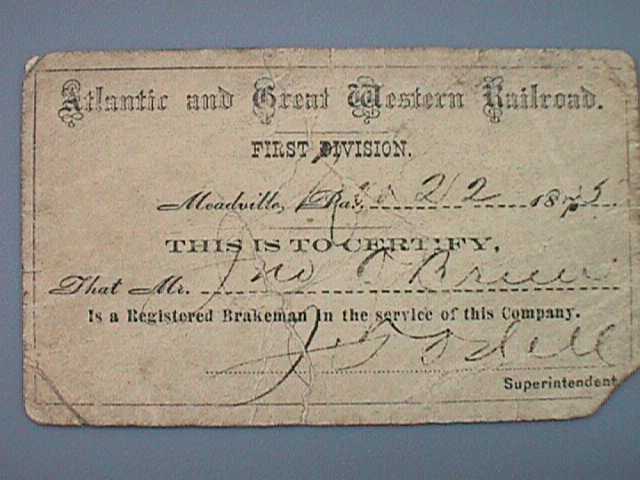 Atlantic and Great Western Railroad.
FIRST DIVISION.
Meadville, Pa., 22 1875
THIS IS TO CERTIFY,
That Mr. Jno O'Brien
Is a Registered Brakeman in the service of this Company.
Odell
Superintendent